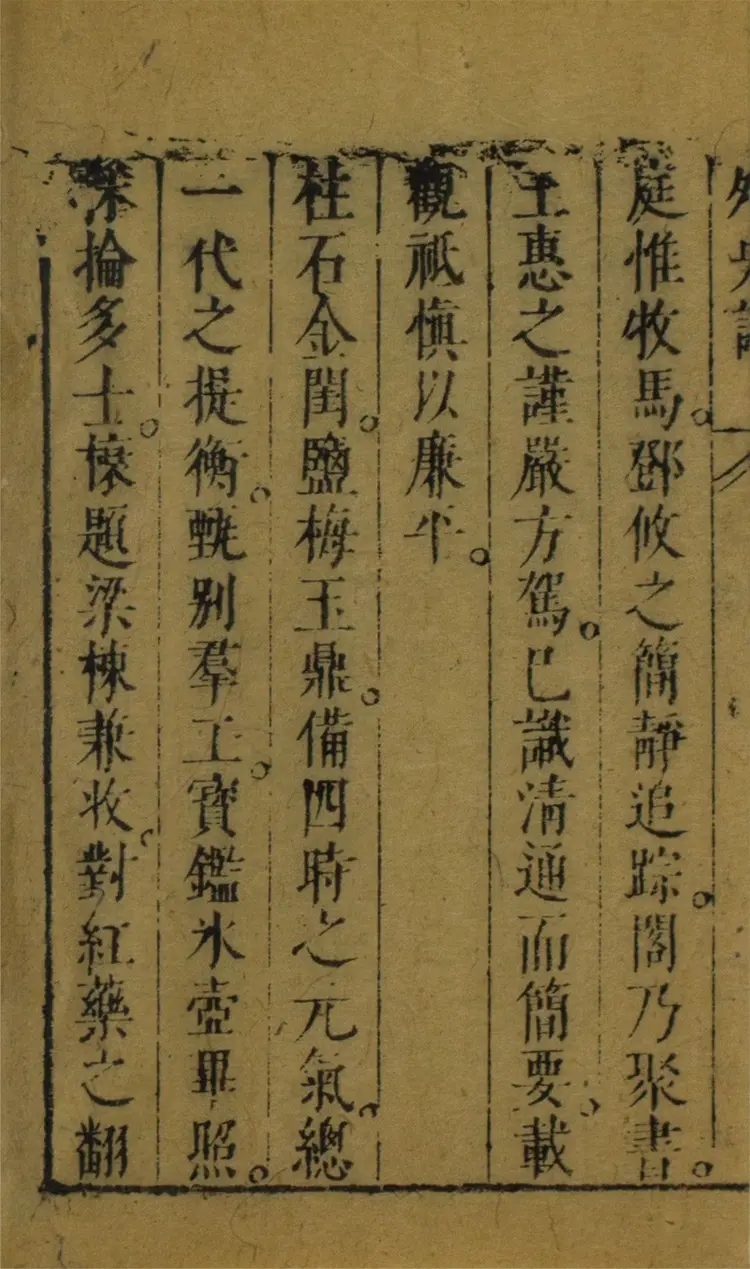 庭惟牧馬。鄧攸之簡靜追踪。閣乃聚書。
王惠之謹嚴方駕。已識清通而簡要。載
觀祗慎以廉平。
柱石金閨。鹽梅玉鼎。備四時之元氣。總
一代之提衡。甄别羣工。寳鑑氷壺畢照。
深掄多士。榱題梁棟兼收。對紅藥之翻